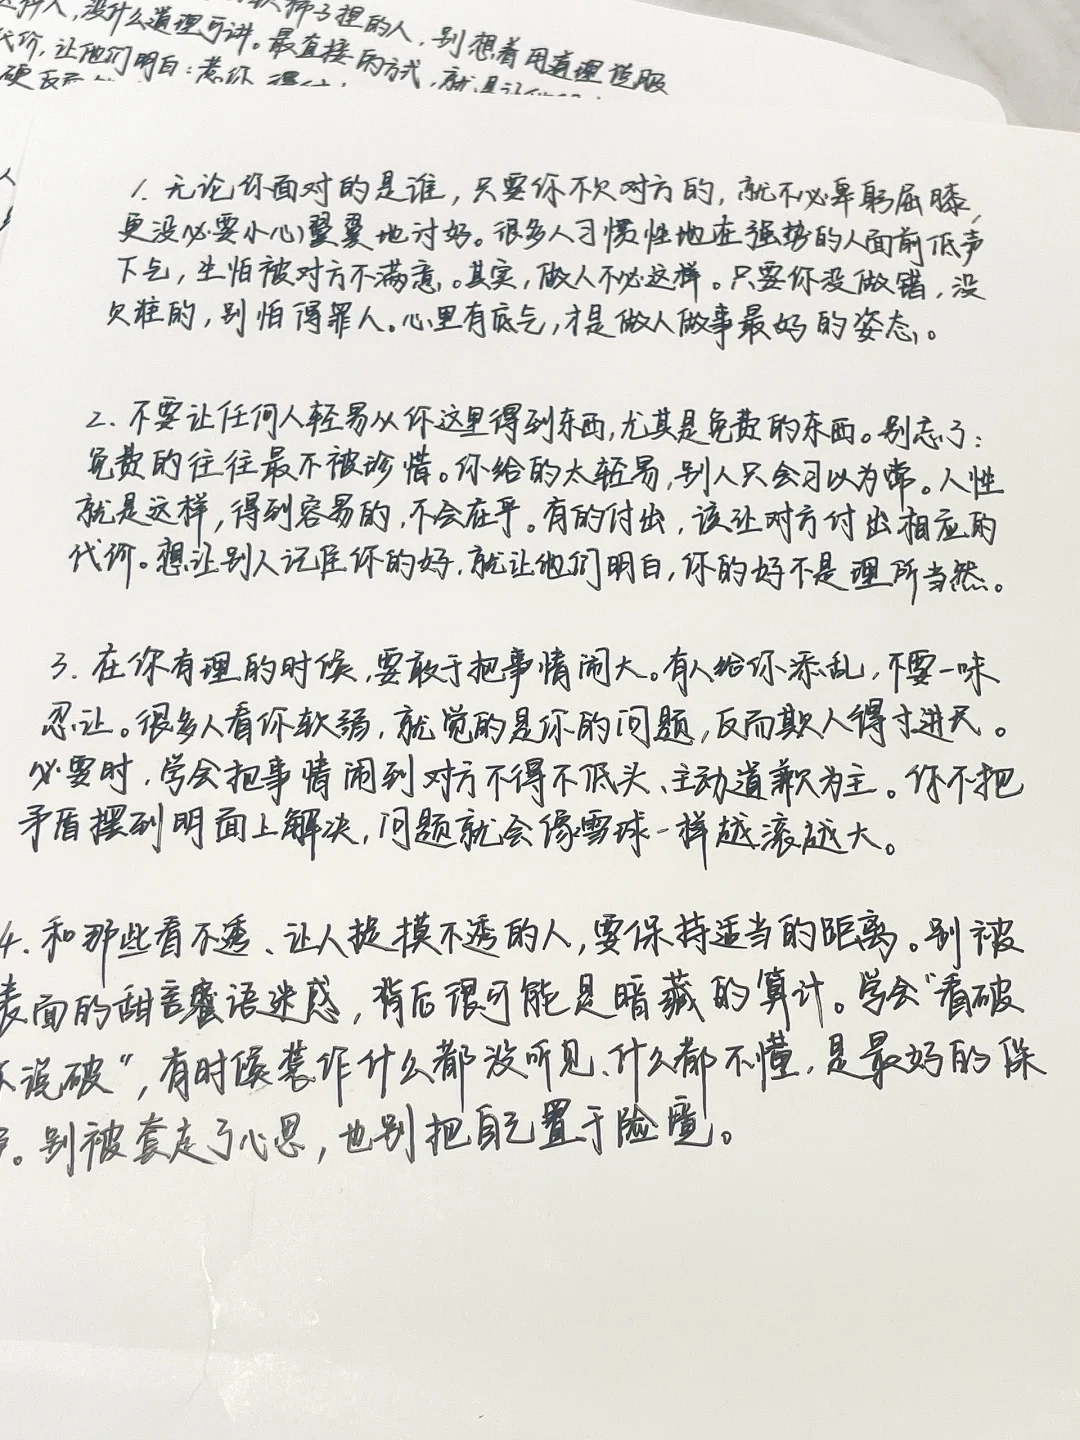 这种人，没什么道理可讲。最直接的方式，就是让他
软柿子捏的人，别想着用道理说服
代价，让他们明白：惹你
硬
1. 无论你面对的是谁，只要你不欠对方的，就不必卑躬屈膝，
更没必要小心翼翼地讨好。很多人习惯性地在强势的人面前低声
下气，生怕被对方不满意。其实，做人不必这样。只要你没做错，没
欠谁的，别怕得罪人。心里有底气，才是做人做事最好的姿态。
2. 不要让任何人轻易从你这里得到东西，尤其是免费的东西。别忘了：
免费的往往最不被珍惜。你给的太轻易，别人只会习以为常。人性
就是这样，得到容易的，不会在乎。有的付出，该让对方付出相应的
代价。想让别人记住你的好，就让他们明白，你的好不是理所当然。
3. 在你有理的时候，要敢于把事情闹大。有人给你添乱，不要一味
忍让。很多人看你软弱，就觉的是你的问题，反而欺人得寸进尺。
必要时，学会把事情闹到对方不得不低头、主动道歉为主。你不把
矛盾摆到明面上解决，问题就会像雪球一样越滚越大。
4. 和那些看不透、让人捉摸不透的人，要保持适当的距离。别被
表面的甜言蜜语迷惑，背后很可能是暗藏的算计。学会“看破
不说破”，有时候装作什么都没听见、什么都不懂，是最好的保
。别被套走了心思，也别把自己置于险境。